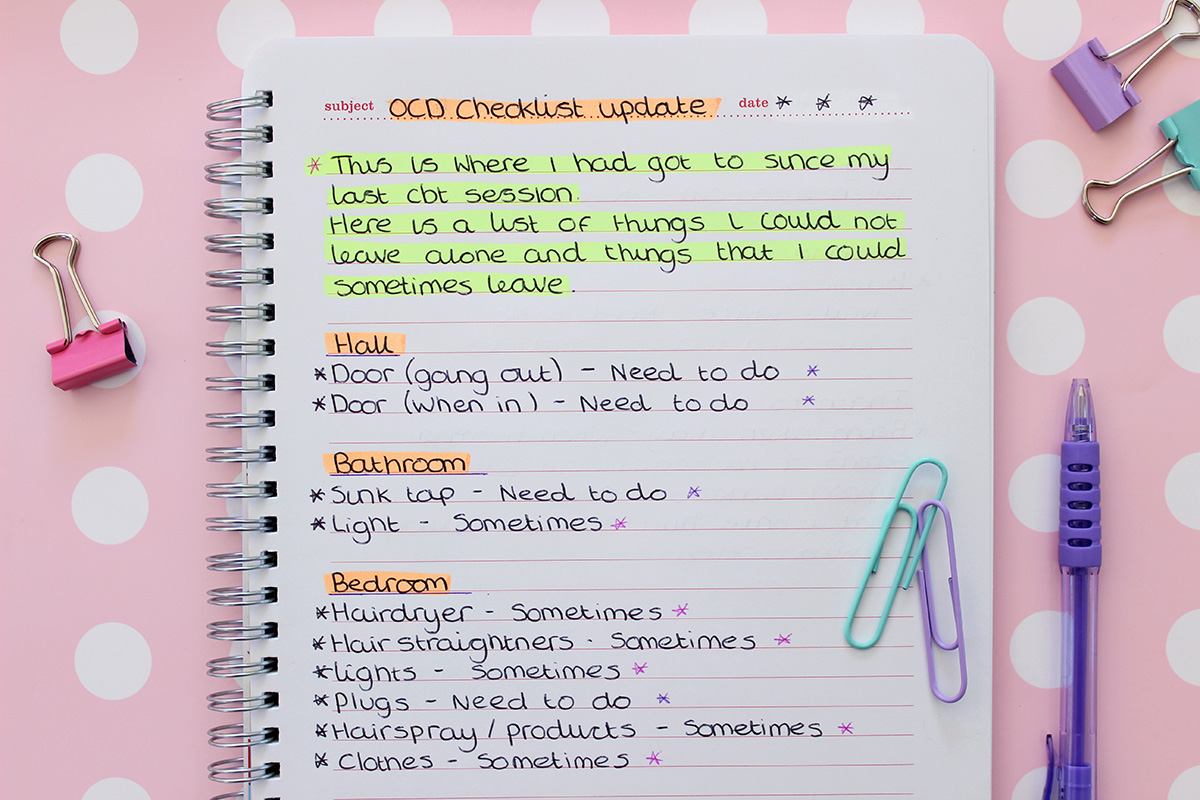 subject OCD Checklist update date * * *
* This is where I had got to since my
last cbt session.
Here is a list of things I could not
leave alone and things that I could
sometimes leave.
Hall
* Door (going out) - Need to do *
* Door (when in) - Need to do *
Bathroom
* Sink tap - Need to do *
* Light - Sometimes *
Bedroom
* Hairdryer - Sometimes *
* Hair straightners - Sometimes *
* Lights - Sometimes *
* Plugs - Need to do *
* Hairspray / products - Sometimes *
* Clothes - Sometimes *